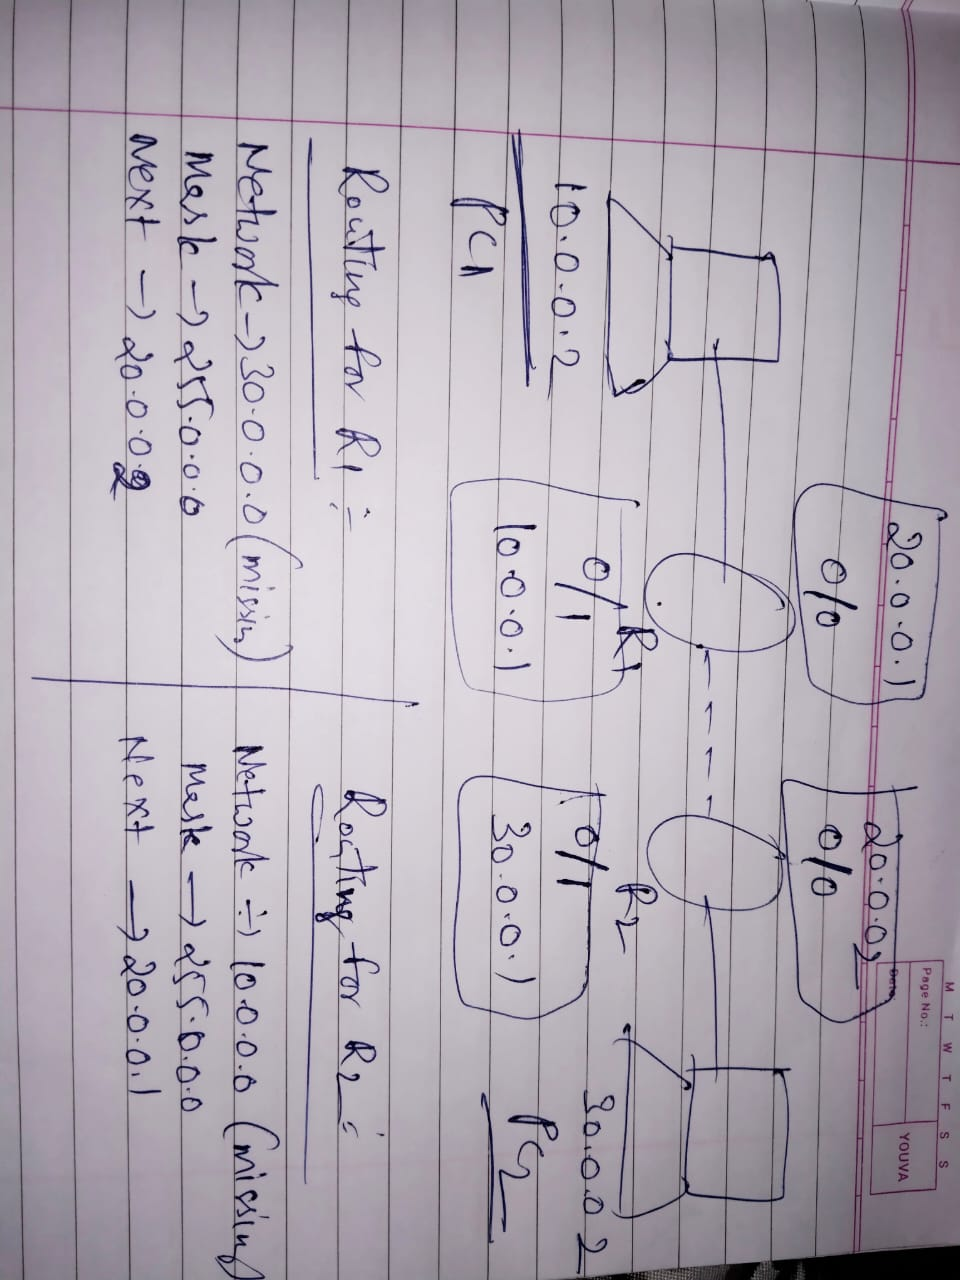 M T W T F S S
Page No.:
Date:
YOUVA
20.0.0.1
0/0
20.0.0.2
0/0
R1
R2
0/1
10.0.0.1
0/1
30.0.0.1
10.0.0.2
PC1
30.0.0 2
PC2
Routing for R1 :-
Network → 30.0.0.0 (missin)
Mask → 255.0.0.0
Next → 20.0.0.2
Routing for R2 :-
Network ÷) 10.0.0.0 (missing)
Mask → 255.0.0.0
Next → 20.0.0.1